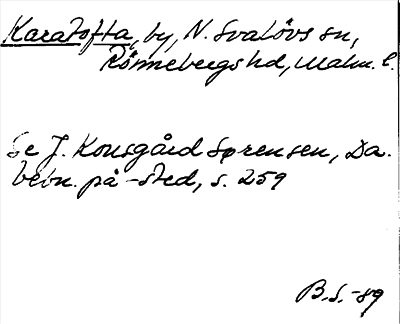 Karatofta, by, N. Svalövs sn,
Rönnebergs hd, Malm. l.
Se J. Kousgård Sørensen, Da.
bebn. på -sted, s. 259
B.S. -89